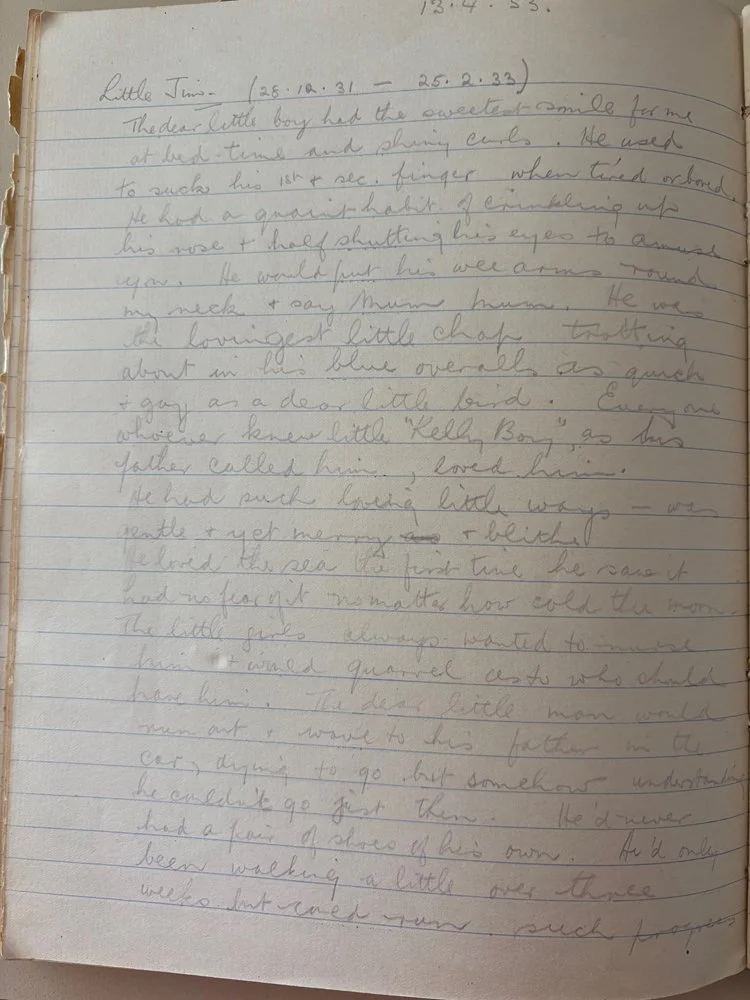 13.4.33.
Little Jim- (28.12.31 — 25.2.33)
The dear little boy had the sweetest smile for me
at bed-time and shiny curls. He used
to suck his 1st + sec. finger when tired or bored.
He had a quaint habit of crinkling up
his nose + half shutting his eyes to amuse
you. He would put his wee arms round
my neck + say Mum Mum. He was
the lovingest little chap trotting
about in his blue overalls as quick
+ gay as a dear little bird. Everyone
whoever knew little "Kelly Boy", as his
father called him, loved him.
He had such loving little ways — was
gentle + yet merry + blithe
He loved the sea the first time he saw it
had no fear of it no matter how cold the morn-
The little girls always wanted to nurse
him + would quarrel as to who should
have him. The dear little man would
run out + wave to his father in the
car, dying to go but somehow understanding
he couldn't go just then. He'd never
had a pair of shoes of his own. He'd only
been walking a little over three
weeks but could run. such progress